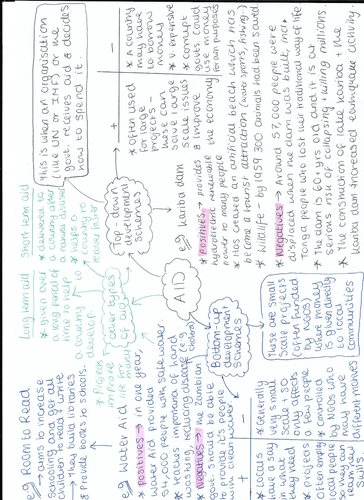 AID
Top-down development schemes
this is when an organisation
like the UN or IMF or the
govt. receives aid & decides
how to spend it.
+
* Often used
for large
projects -
these can
solve large
scale issues
& improve
the economy
-
* A country
may have
to borrow
money
* V. expensive
* corrupt
govt. could
use money
for own purposes
eg Kariba dam
* positives → provides
hydroelectric renewable
power to many people
* Has created an artificial beach which has
become a tourist attraction (water sports, fishing)
* Wildlife - by 1959 300 animals had been saved
* Negatives → Around 57,000 people were
displaced when the dam was built, incl.
Tonga people who lost their traditional way of life
* The dam is 60+ yrs old and it is at
serious risk of collapsing + killing millions.
* The construction of lake Kariba + the
Kariba dam increased earthquake activity.
Bottom-up development schemes
These are small
scale projects
(often funded
by NGOs)
where money
is given directly
to local
communities
+
* Locals
have a say
in what
they need
-
* Generally
very small
scale + so
only affects
a few people
* projects are
often employ
local people
by NGOs who
may have
Other types of aid
Short term aid
* delivered to
a country after
a natural disaster
* helps a
country to
recover faster
Long term aid
* given over
a long period of
time to help
a country to
develop.
eg Room to Read
→ aims to increase
schooling and get all
children to read & write
→ They build libraries
& provide books to schools.
eg Water Aid
* positives → in one year,
Water Aid provided
517,000 people with safe water
* teaches importance of hand
washing, reducing disease (eg cholera)
* Negatives → The Zambian
govt. should be able
clean water